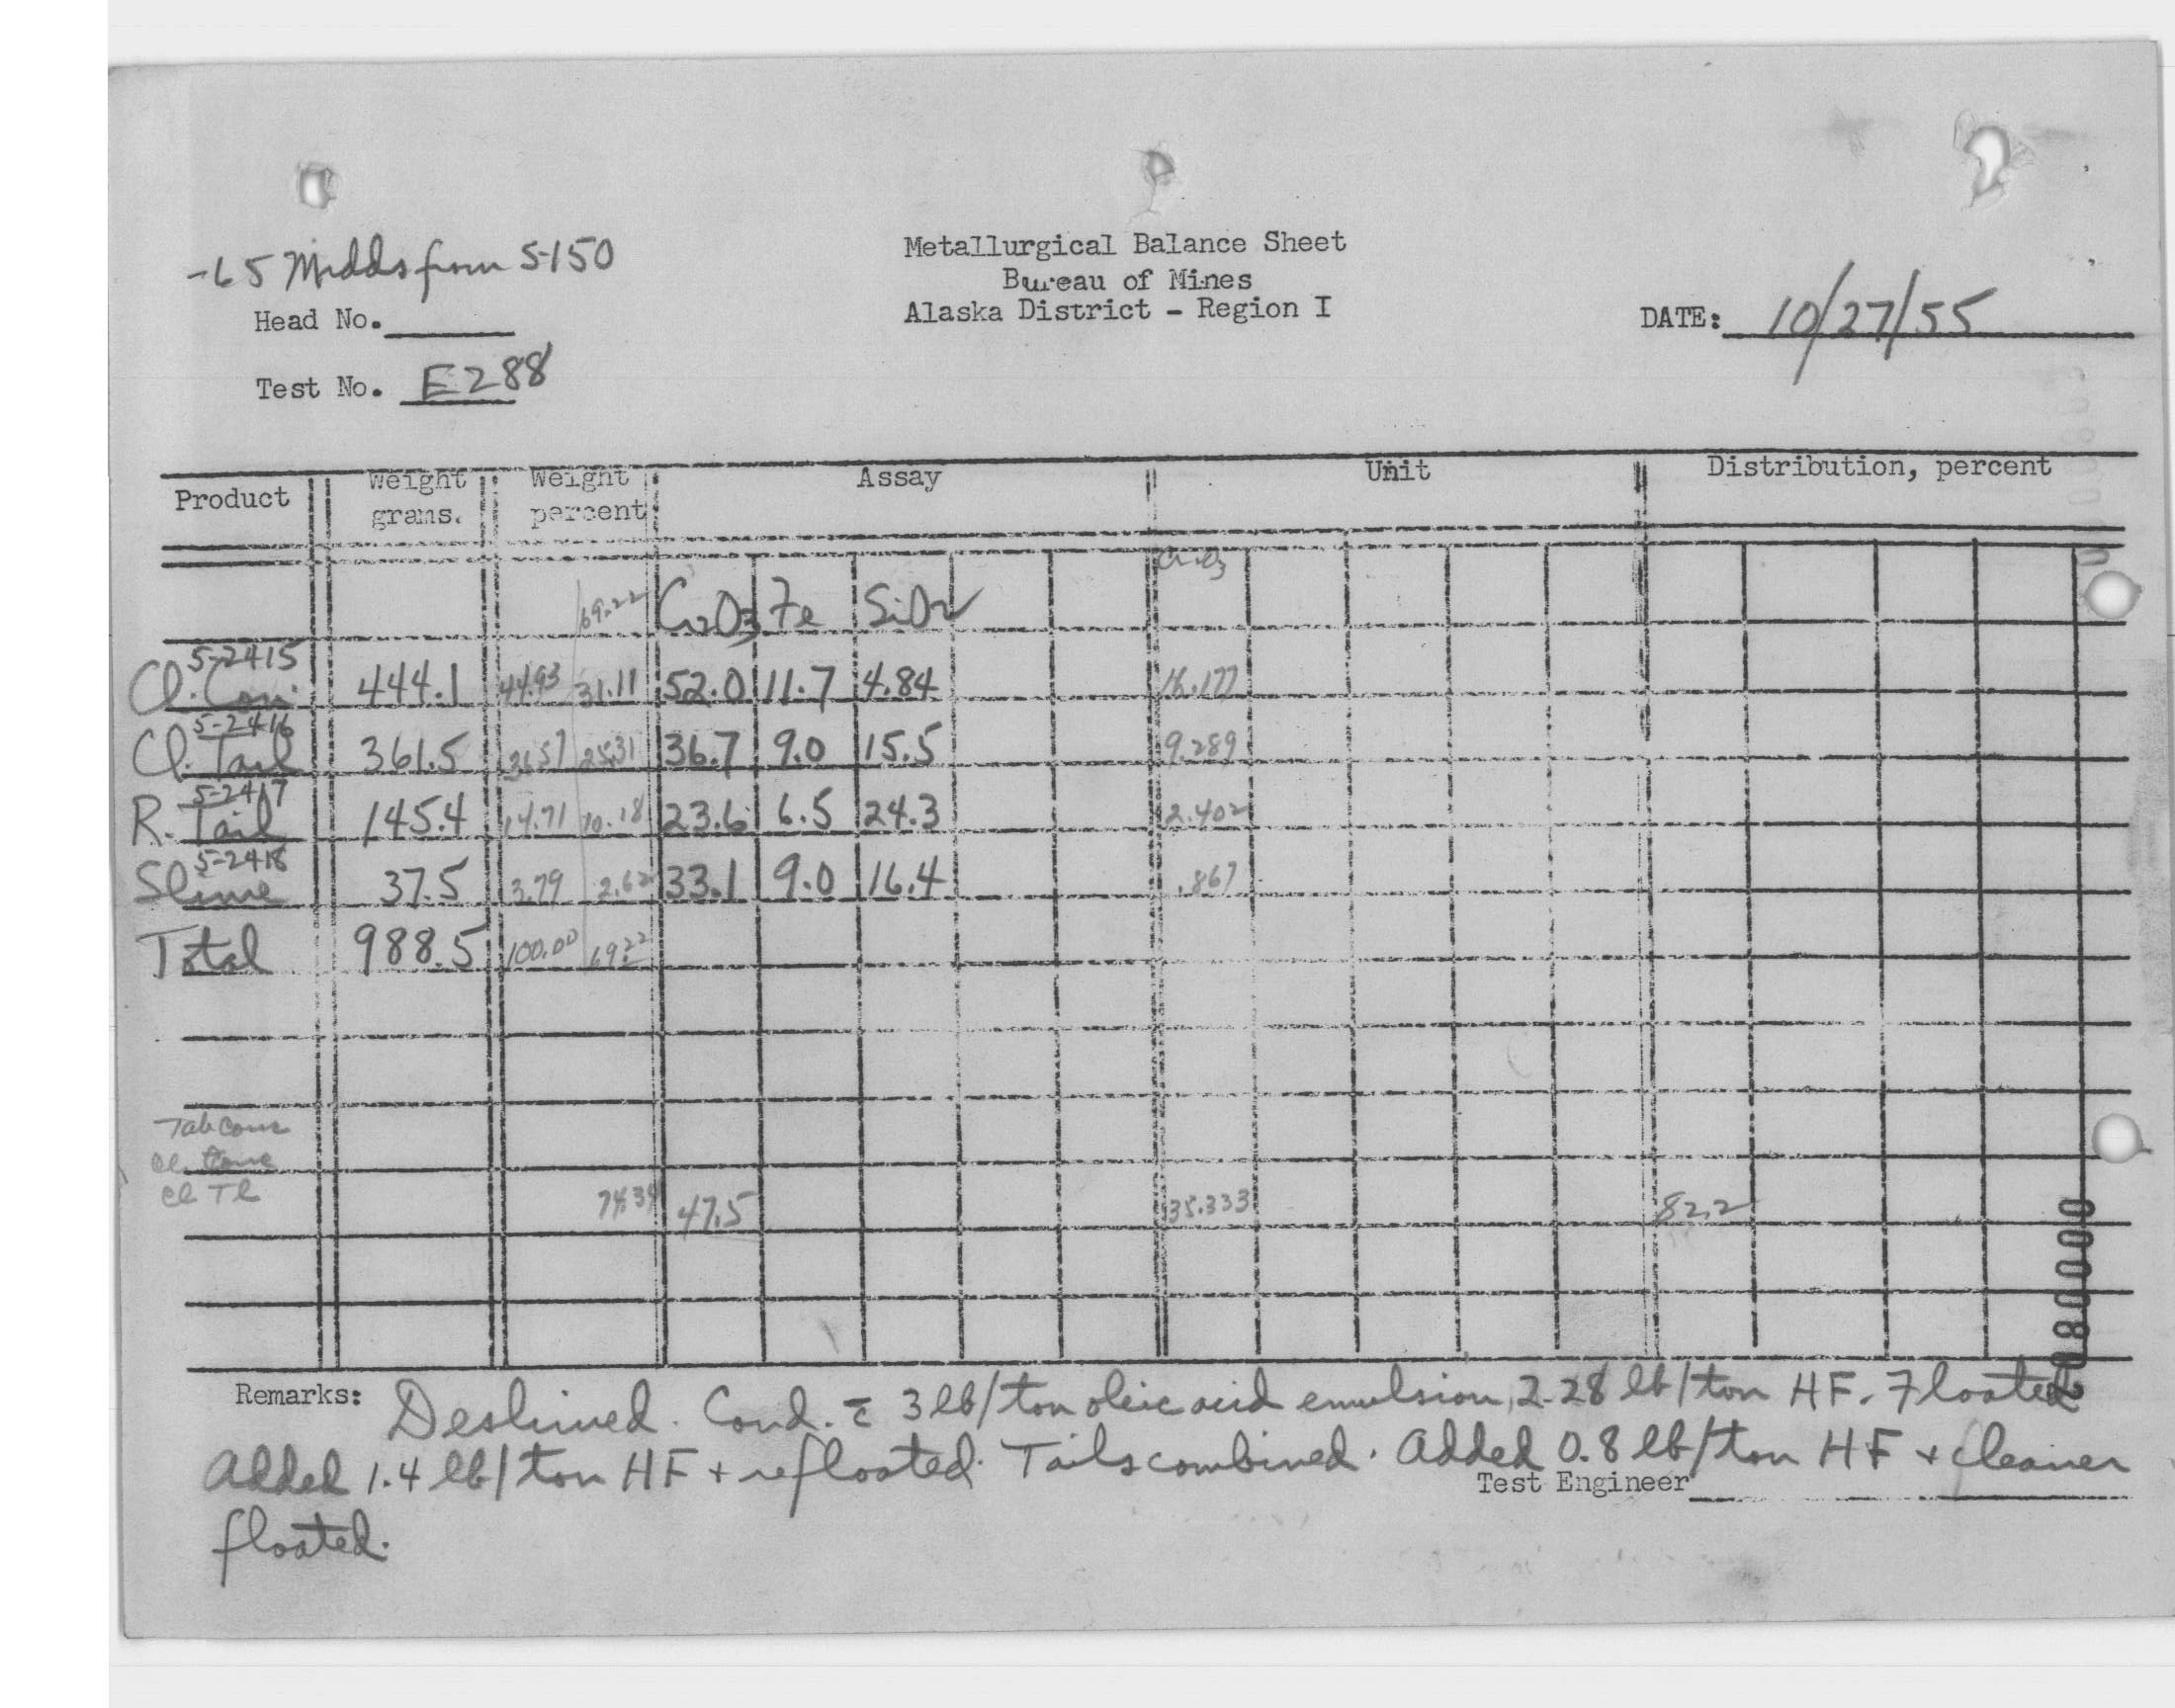 -65 Midds from S-150
Metallurgical Balance Sheet
Bureau of Mines
Alaska District - Region I
Head No.
DATE: 10/27/55
Test No. E288
Product Weight grams. Weight percent Assay Unit Distribution, percent
69.22 Cr2O3 Fe SiO2 Cr2O3
5-2415
Cl. Conc 444.1 44.93 31.11 52.0 11.7 4.84 16.177
5-2416
Cl. Tail 361.5 36.57 25.31 36.7 9.0 15.5 9.289
5-2417
R. Tail 145.4 14.71 10.18 23.6 6.5 24.3 2.402
5-2418
Slime 37.5 3.79 2.62 33.1 9.0 16.4 .867
Total 988.5 100.00 69.22
Tab Conc
Cl. Conc
Cl Tl 74.34 47.5 35.333 82.2
Remarks: Deslimed. Cond. c̄ 3 lb/ton oleic acid emulsion, 2.28 lb/ton HF. Floated
Added 1.4 lb/ton HF + refloated. Tails combined. Added 0.8 lb/ton HF + cleaner
Test Engineer
floated.